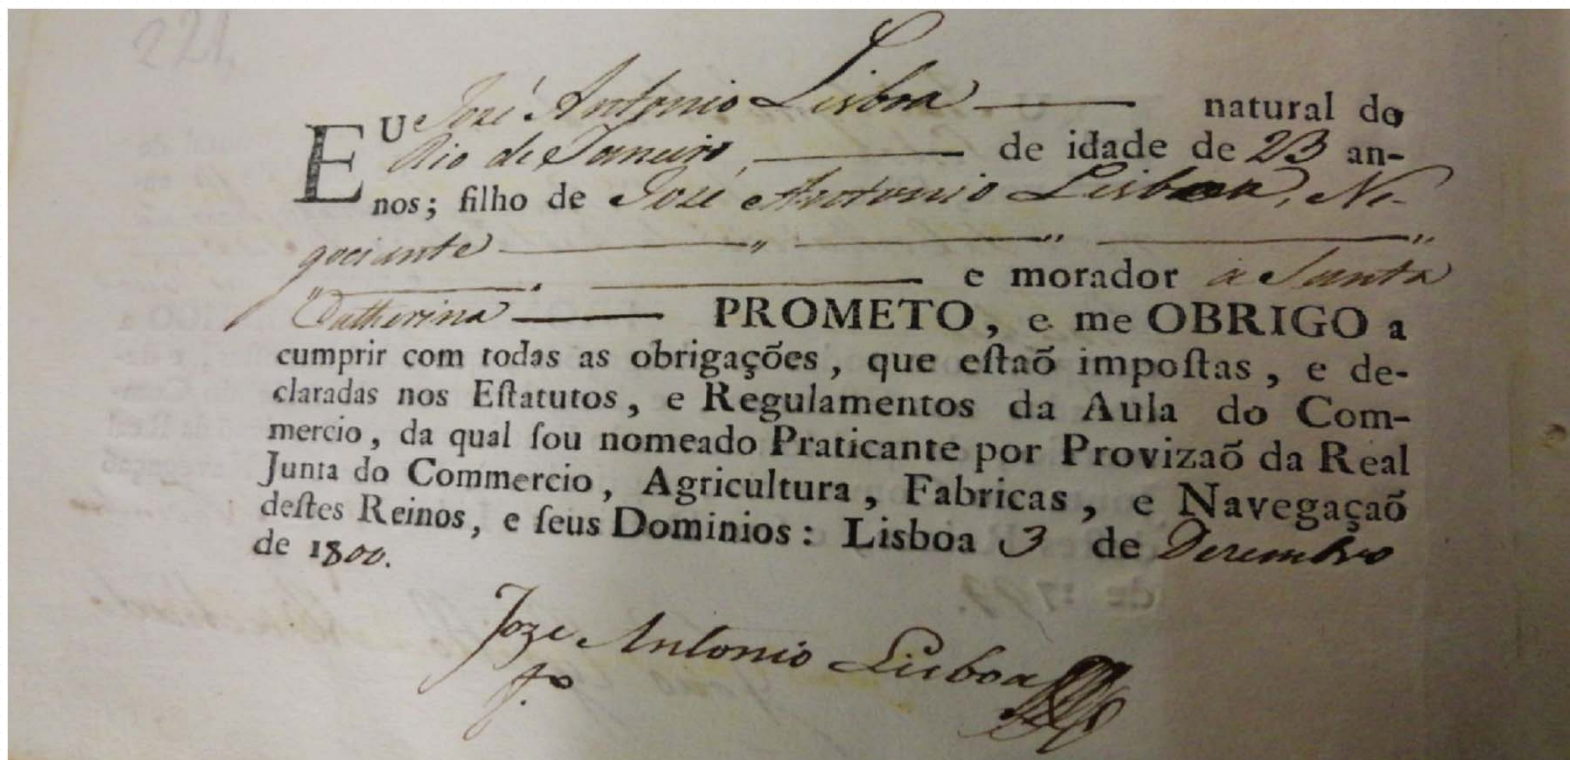 221,
EU José Antonio Lisboa ——— natural do
Rio de Janeiro ——— de idade de 23 an-
nos; filho de José Antonio Lisboa, Ne-
gociante ———„ ———„ ———„
„ ———. ——— e morador a Santa
Catherina ——— PROMETO, e me OBRIGO a
cumprir com todas as obrigações, que eſtaõ impoſtas, e de-
claradas nos Eſtatutos, e Regulamentos da Aula do Com-
mercio, da qual ſou nomeado Praticante por Provizaõ da Real
Junta do Commercio, Agricultura, Fabricas, e Navegaçaõ
deſtes Reinos, e ſeus Dominios: Lisboa 3 de Dezembro
de 1800.
Joze Antonio Lisboa
fo